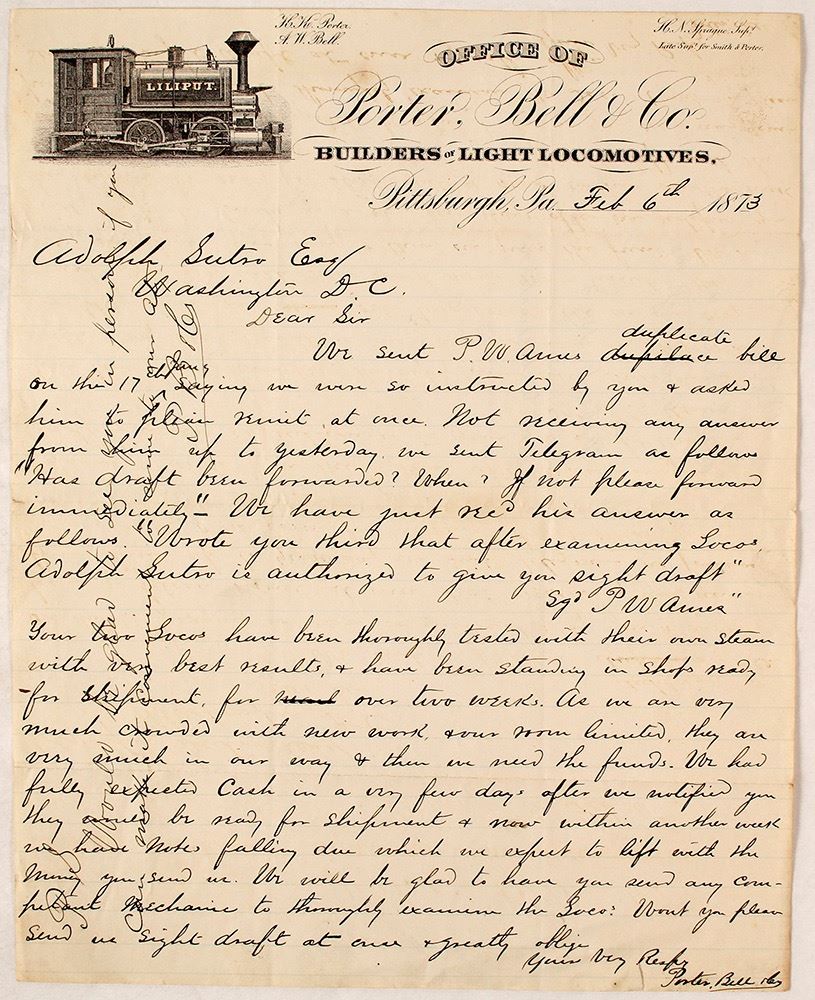 H. K. Porter.
A. W. Bell.
H. N. Sprague Supt.
Late Supt. for Smith & Porter.
LILIPUT.
OFFICE OF
Porter, Bell & Co.
BUILDERS OF LIGHT LOCOMOTIVES,
Pittsburgh, Pa. Feb 6th 1873
Adolph Sutro Esq
Washington D C.
Dear Sir
We sent P. W. Ames duplicate bill
on the 17th Jany saying we were so instructed by you & asked
him to please remit at once. Not receiving any answer
from him up to yesterday we sent Telegram as follows
"Has draft been forwarded? When? If not please forward
immediately" – We have just recd his answer as
follows. "Wrote you third that after examining Locos.
Adolph Sutro is authorized to give you sight draft"
Sgd P W Ames"
Your two Locos have been thoroughly tested with their own steam
with very best results, & have been standing in shop ready
for shipment, for over two weeks. As we are very
much crowded with new work, & our room limited, they are
very much in our way & then we need the funds. We had
fully expected Cash in a very few days after we notified you
they would be ready for shipment & now within another week
we have Notes falling due which we expect to lift with the
money you send us. We will be glad to have you send any com-
petant Mechanic to thoroughly examine the Locos. Wont you please
send us sight draft at once & greatly oblige
Yours Very Respy
Porter, Bell & Co
P.S. Would be glad to see you in person if you
can make it convenient to come to our
P B & Co